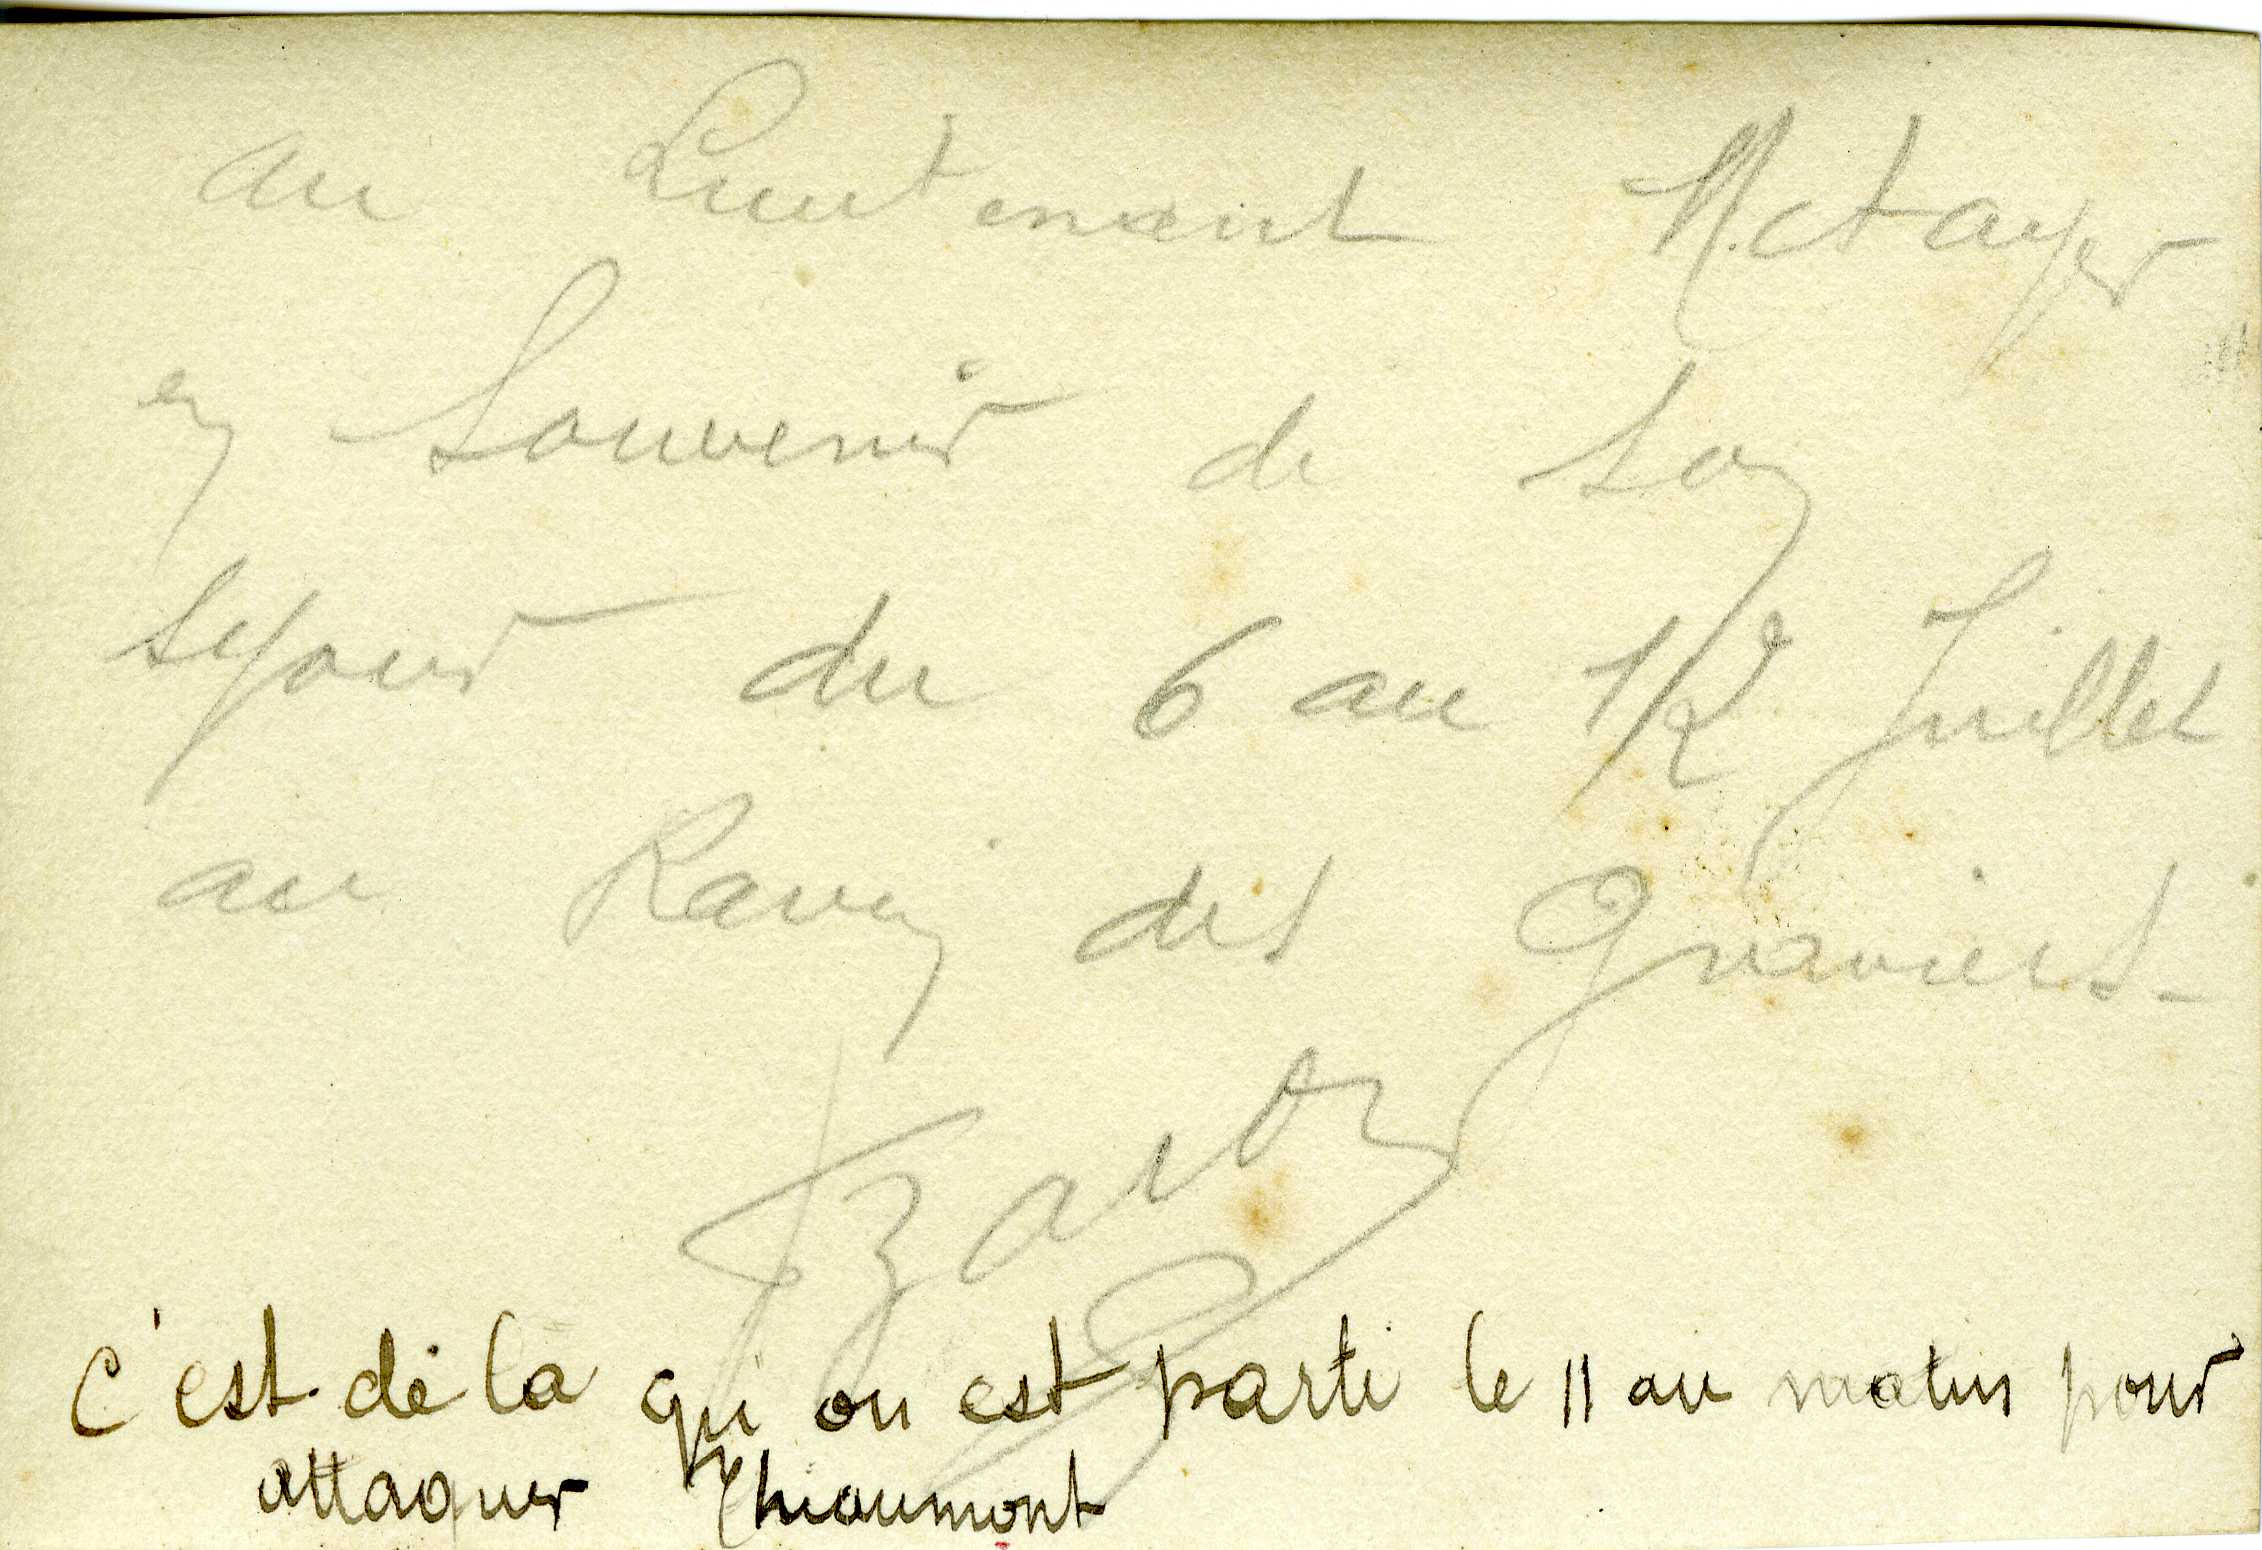 au Lieutenant Metayer
en Souvenir de son
séjour du 6 au 12 Juillet
au Ravin des Graviers -
c'est de la qu'on est parti le 11 au matin pour
attaquer Thiaumont